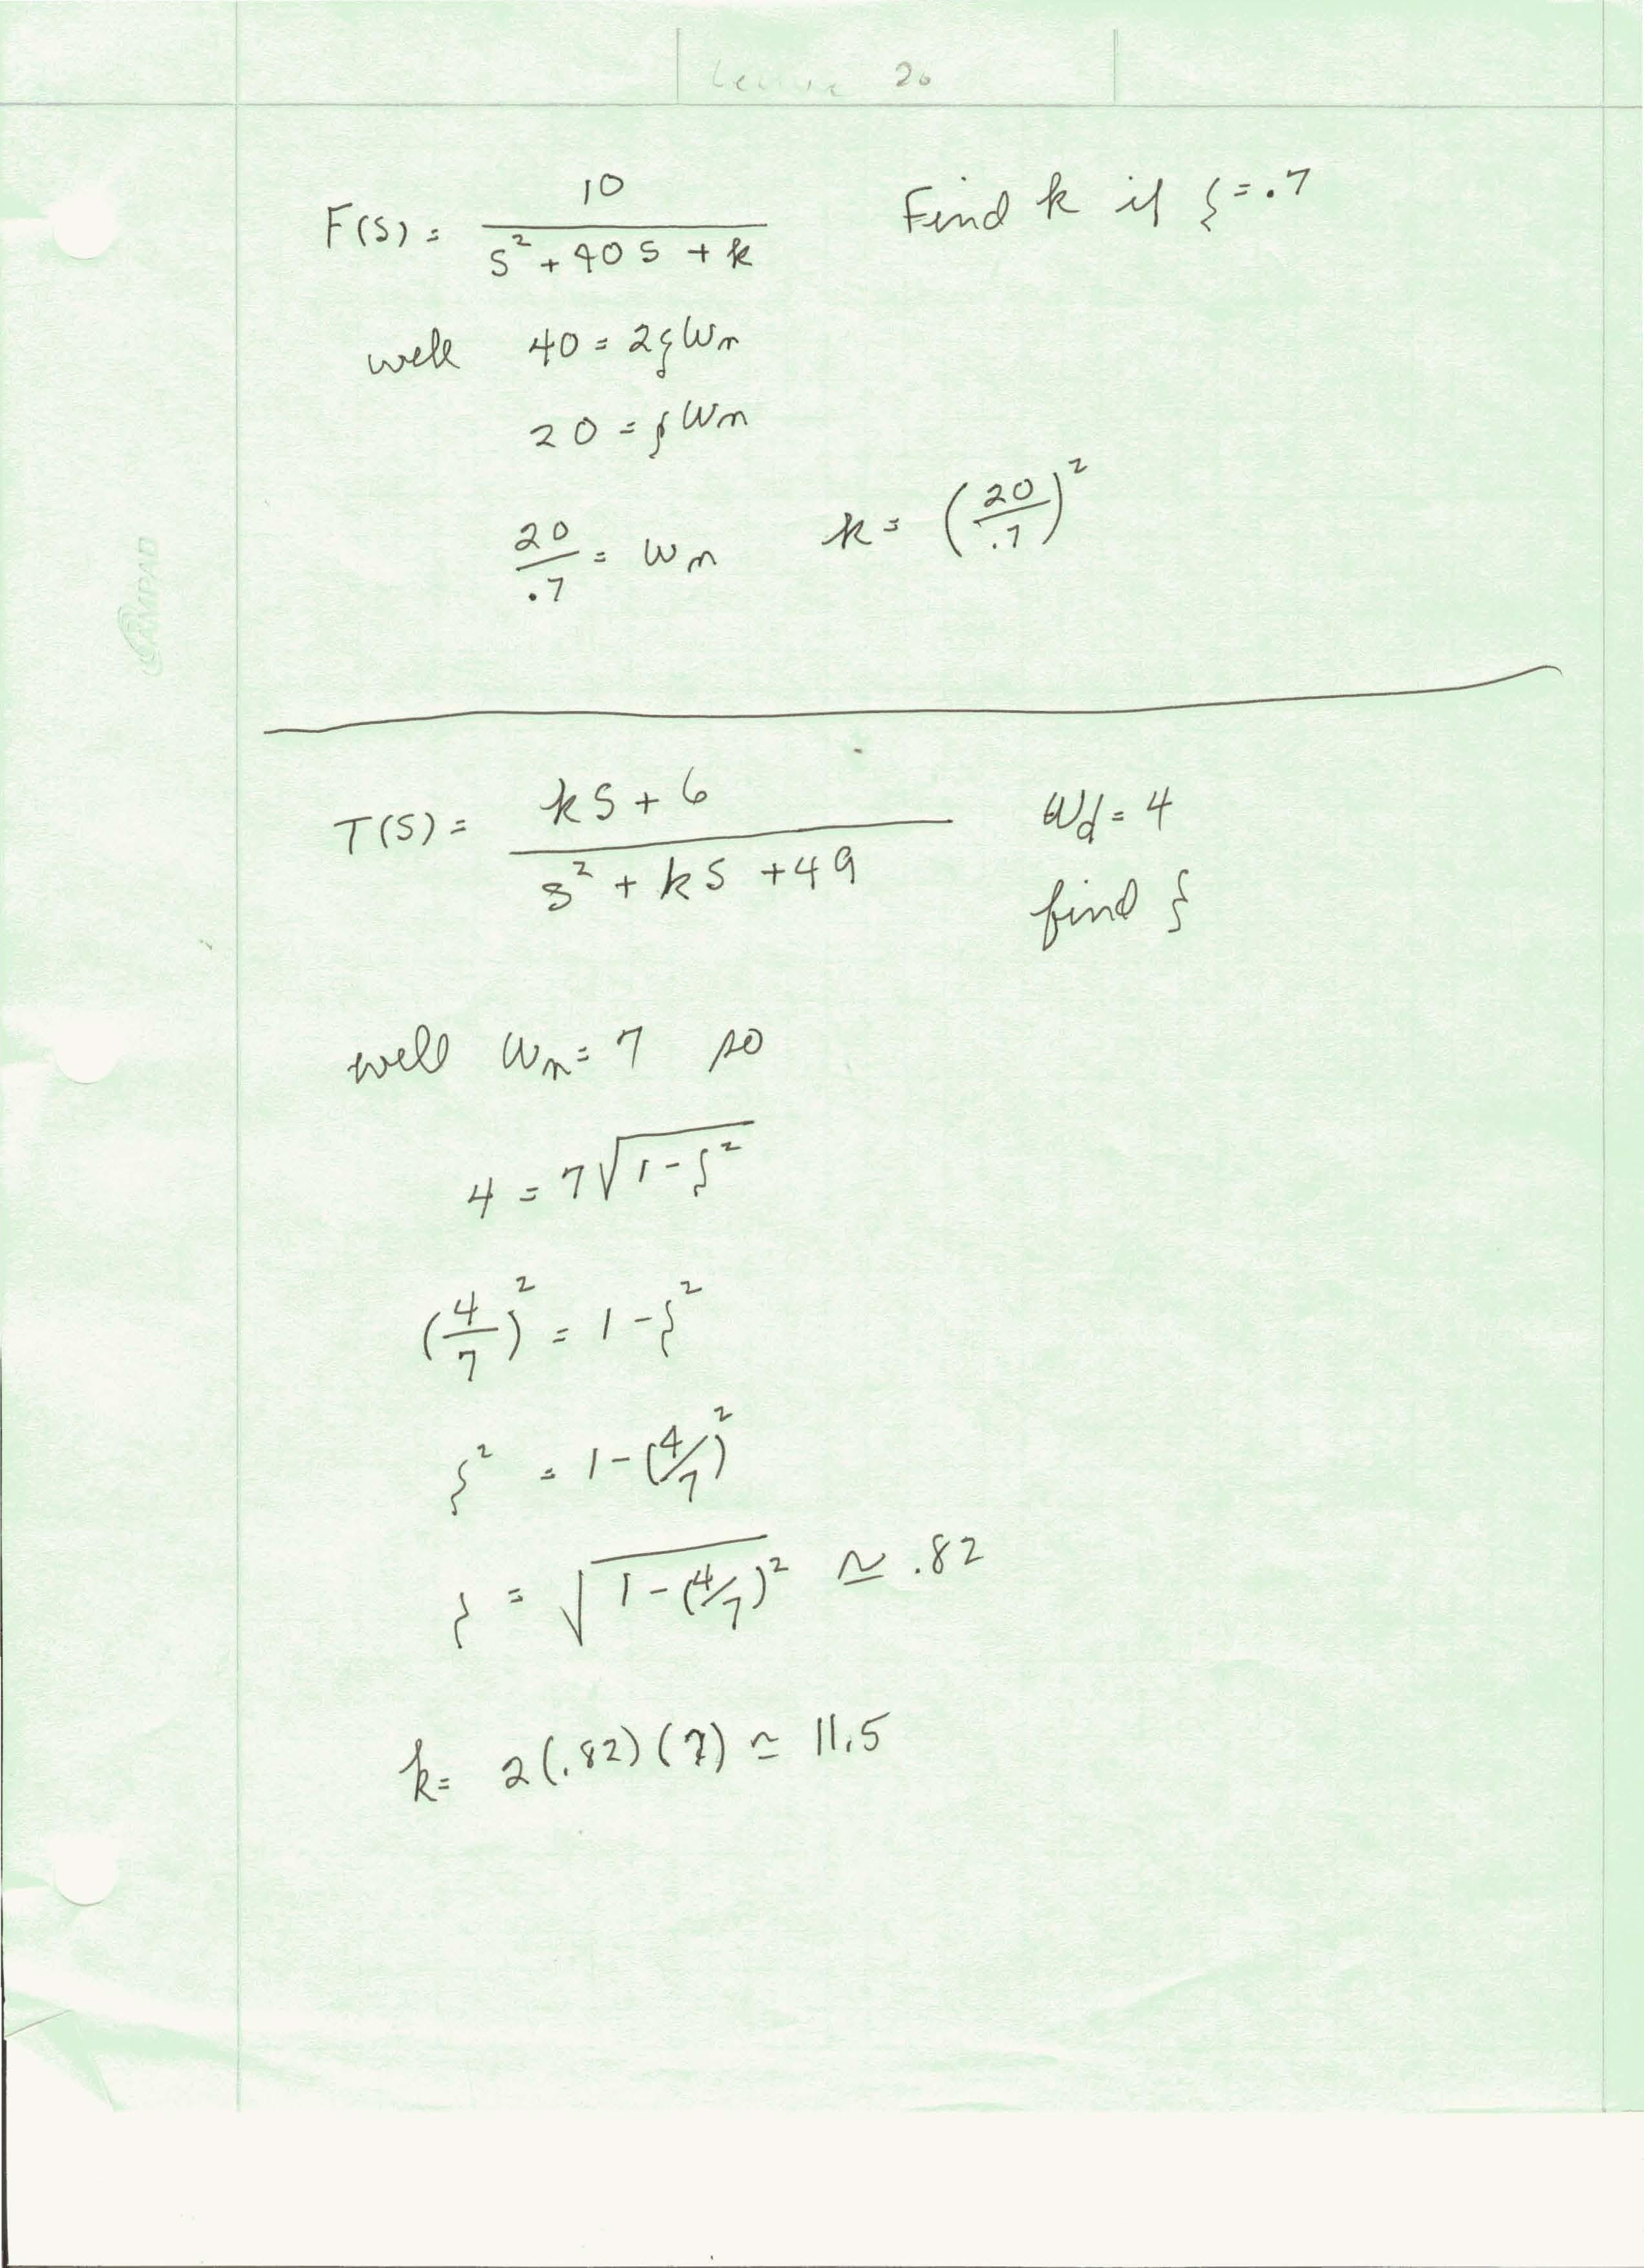 Lecture 20
F(s) = 10 / (s² + 40s + k)    Find k if ζ = .7
well 40 = 2ζωn
20 = ζωn
20/.7 = ωn    k = (20/.7)²
T(s) = (ks + 6) / (s² + ks + 49)    ωd = 4
find ζ
well ωn = 7 so
4 = 7√(1 - ζ²)
(4/7)² = 1 - ζ²
ζ² = 1 - (4/7)²
ζ = √(1 - (4/7)²) ≃ .82
k = 2(.82)(7) ≃ 11.5
AMPAD